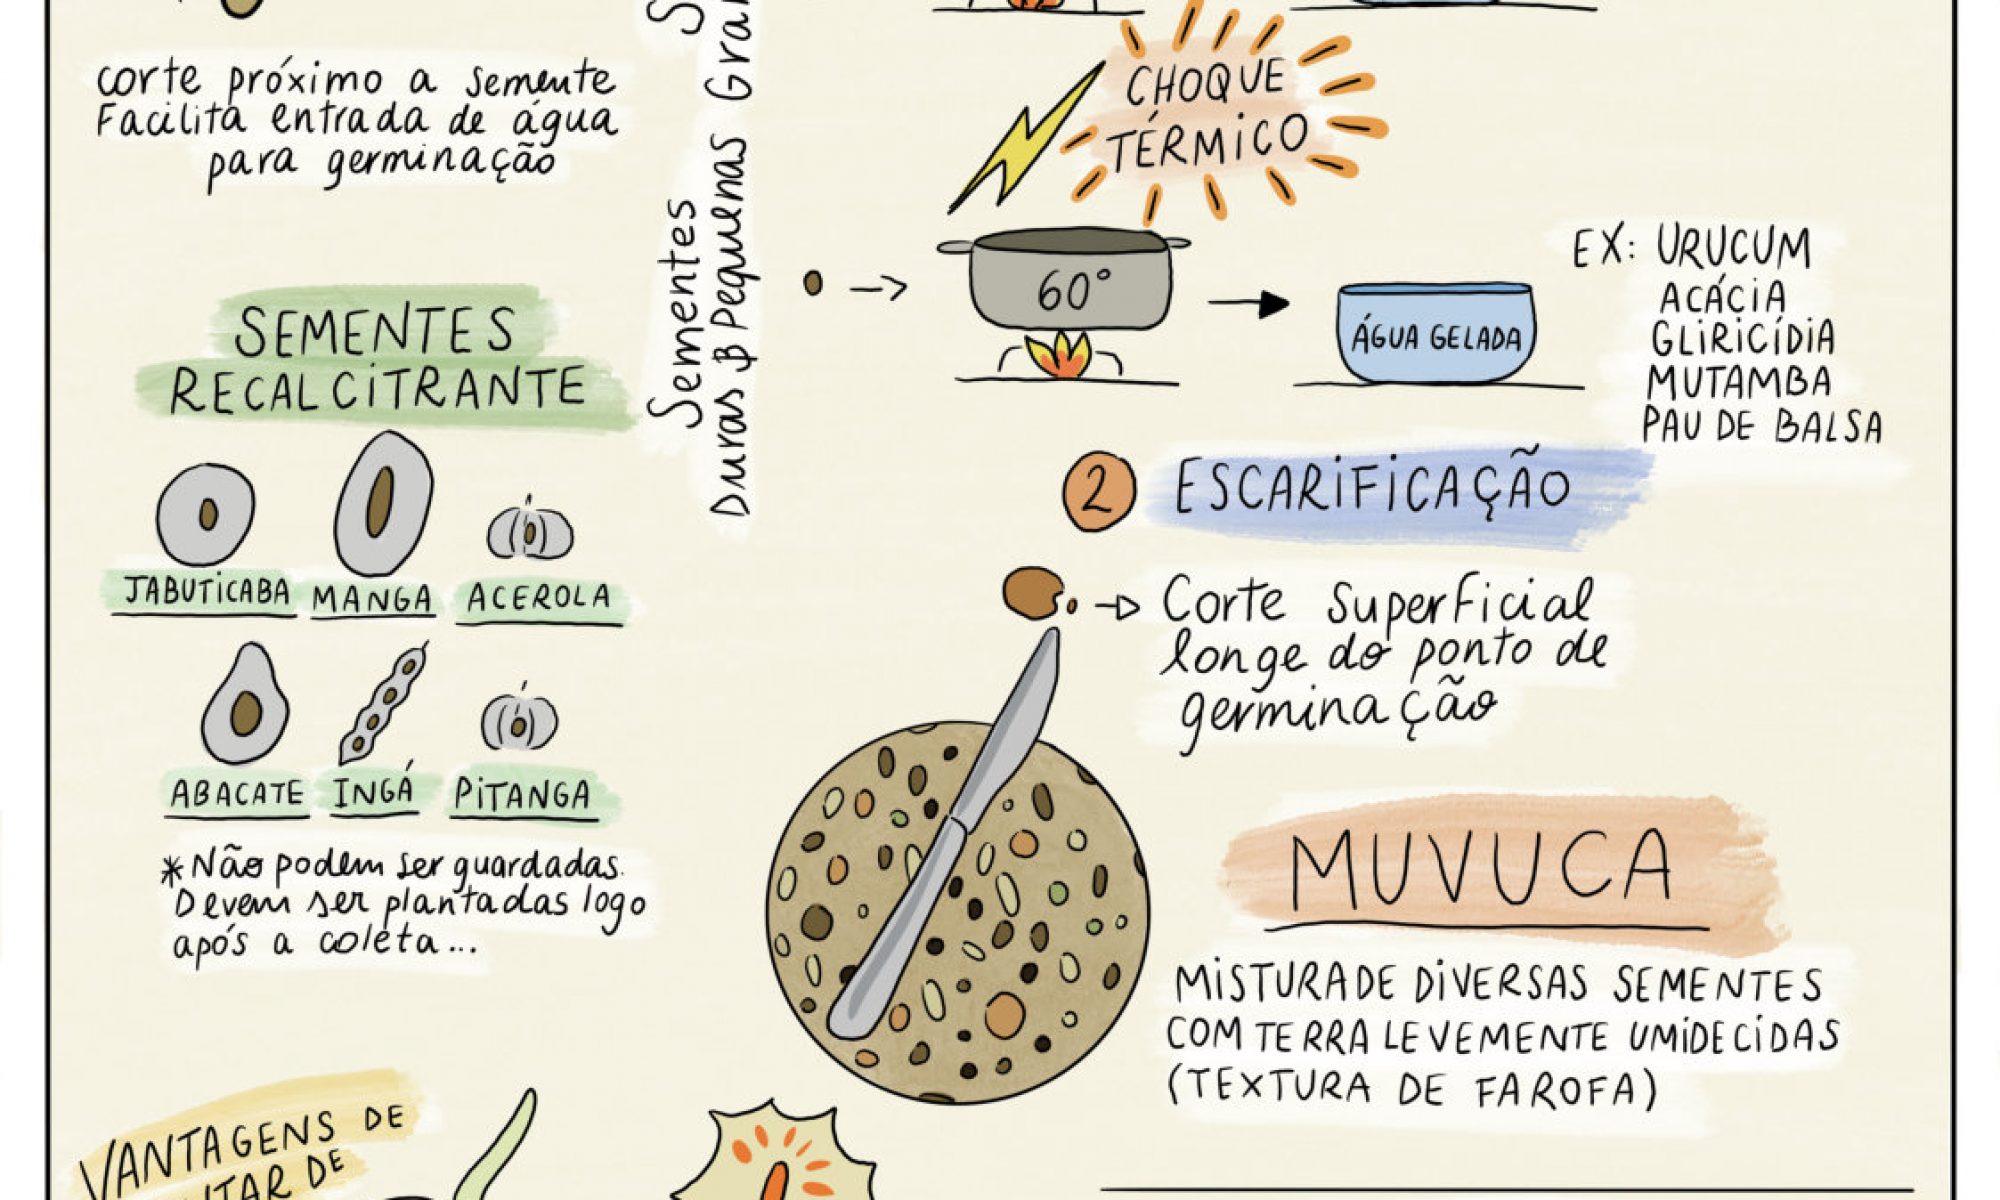 corte próximo a semente
Facilita entrada de água
para germinação
SEMENTES
RECALCITRANTE
JABUTICABA MANGA ACEROLA
ABACATE INGÁ PITANGA
*Não podem ser guardadas.
Devem ser plantadas logo
após a coleta...
VANTAGENS DE
DE
Sementes
Duras & Pequenas
CHOQUE
TÉRMICO
60°
ÁGUA GELADA
EX: URUCUM
ACÁCIA
GLIRICÍDIA
MUTAMBA
PAU DE BALSA
2 ESCARIFICAÇÃO
Corte superficial
longe do ponto de
germinação
MUVUCA
MISTURA DE DIVERSAS SEMENTES
COM TERRA LEVEMENTE UMIDECIDAS
(TEXTURA DE FAROFA)